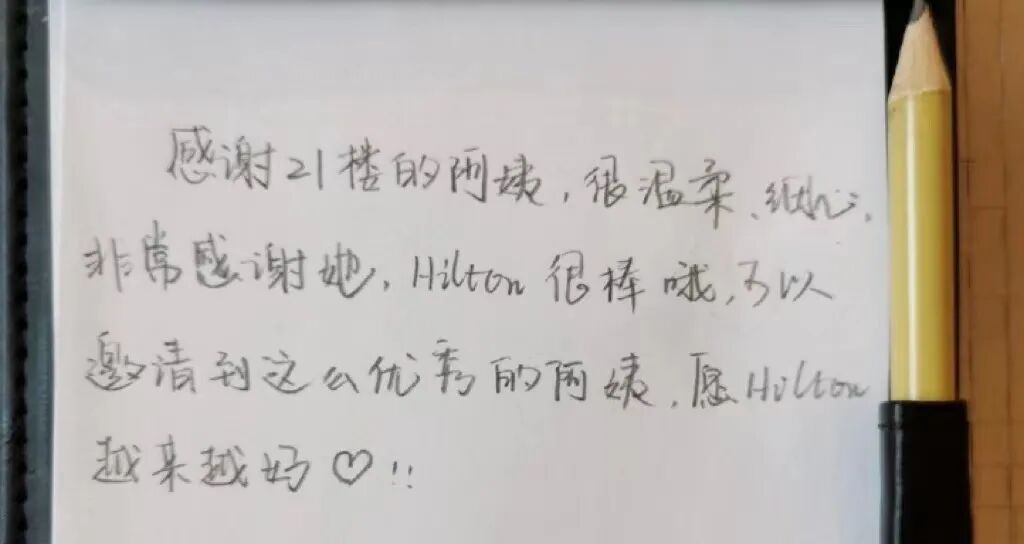 感谢21楼的阿姨，很温柔、细心，
非常感谢她，Hilton 很棒哦，可以
邀请到这么优秀的阿姨，愿Hilton
越来越好♡!!